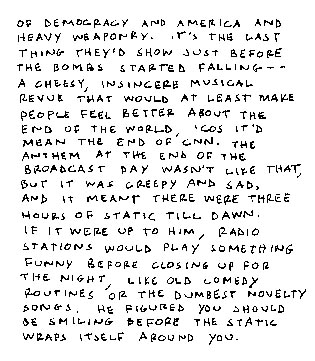 OF DEMOCRACY AND AMERICA AND
HEAVY WEAPONRY. IT'S THE LAST
THING THEY'D SHOW JUST BEFORE
THE BOMBS STARTED FALLING--
A CHEESY, INSINCERE MUSICAL
REVUE THAT WOULD AT LEAST MAKE
PEOPLE FEEL BETTER ABOUT THE
END OF THE WORLD, 'COS IT'D
MEAN THE END OF CNN. THE
ANTHEM AT THE END OF THE
BROADCAST DAY WASN'T LIKE THAT,
BUT IT WAS CREEPY AND SAD,
AND IT MEANT THERE WERE THREE
HOURS OF STATIC TILL DAWN.
IF IT WERE UP TO HIM, RADIO
STATIONS WOULD PLAY SOMETHING
FUNNY BEFORE CLOSING UP FOR
THE NIGHT, LIKE OLD COMEDY
ROUTINES OR THE DUMBEST NOVELTY
SONGS. HE FIGURED YOU SHOULD
BE SMILING BEFORE THE STATIC
WRAPS ITSELF AROUND YOU.